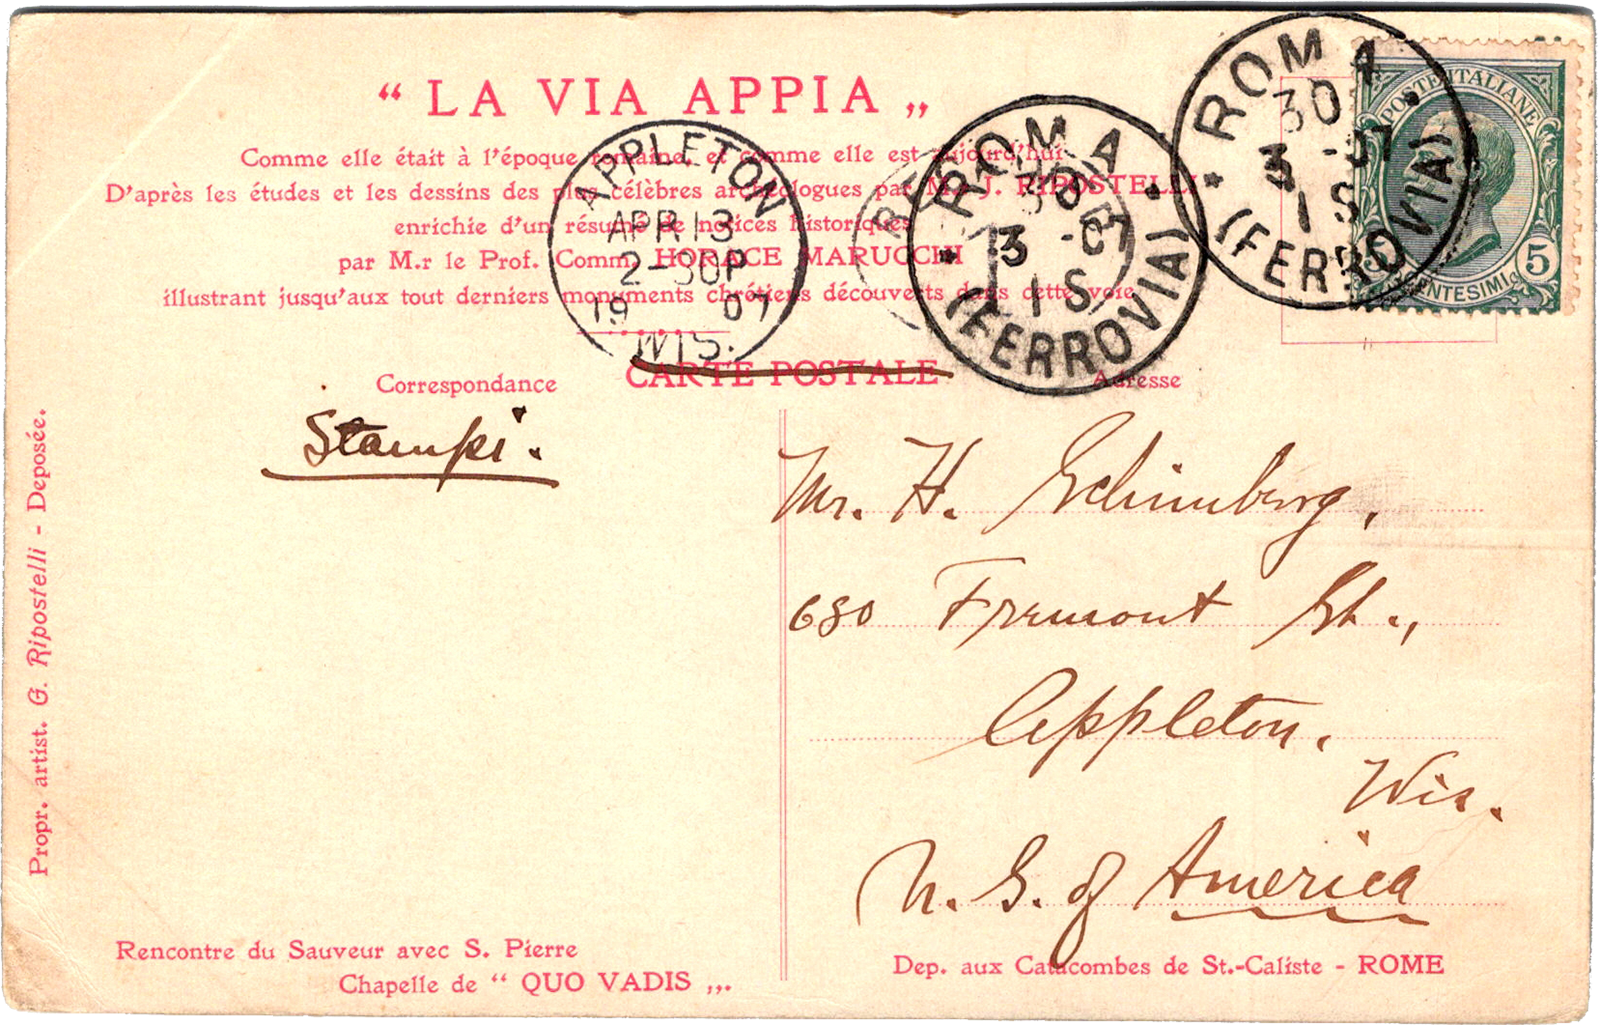 “ LA VIA APPIA „
Comme elle était à l'époque romaine, et comme elle est aujourd'hui
D'après les études et les dessins des plus célèbres archéologues par M. J. RIPOSTELLI
enrichie d'un résumé de notices historiques
par M.r le Prof. Comm. HORACE MARUCCHI
illustrant jusqu'aux tout derniers monuments chrétiens découverts dans cette voie
APPLETON
APR 13
2-30P
19 07
WIS.
ROMA
30
3 -07
1 S
(FERROVIA)
ROMA
30
3 -07
1 S
(FERROVIA)
POSTE ITALIANE
5 CENTESIMI 5
Correspondance
CARTE POSTALE
Adresse
Stampi.
Mr. H. Schimberg,
680 Fremont St.,
Appleton.
Wis.
U. S. of America
Propr. artist. G. Ripostelli - Deposée.
Rencontre du Sauveur avec S. Pierre
Chapelle de “ QUO VADIS „.
Dep. aux Catacombes de St.-Caliste - ROME